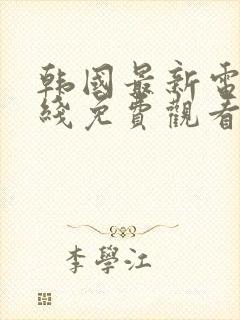 韩國最新電
綫免費觀看
李學江